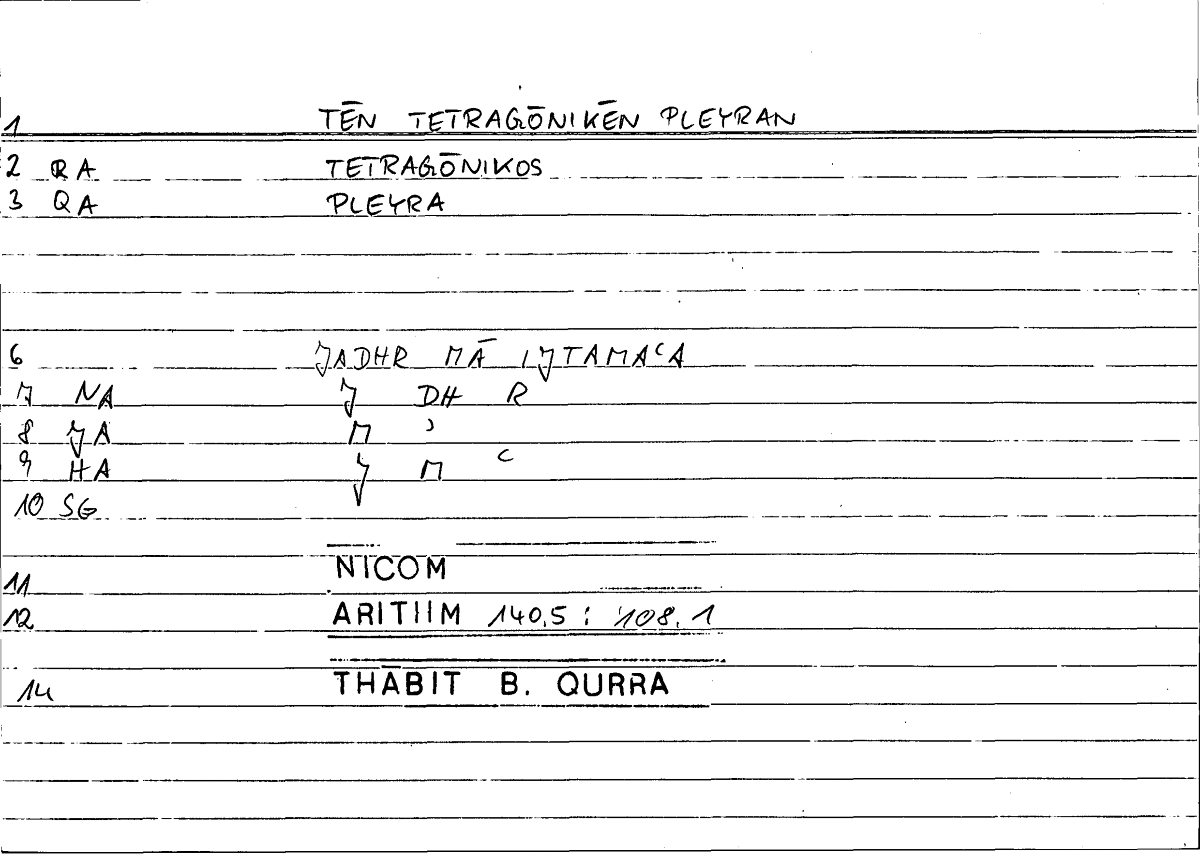 1 TĒN TETRAGŌNIKĒN PLEYRAN
2 RA TETRAGŌNIKOS
3 QA PLEYRA
6 JADHR MĀ IJTAMAʿA
7 NA J DH R
8 JA M ʾ
9 HA J M ʿ
10 SG
11 NICOM
12 ARITIIM 140.5 : 108.1
14 THĀBIT B. QURRA